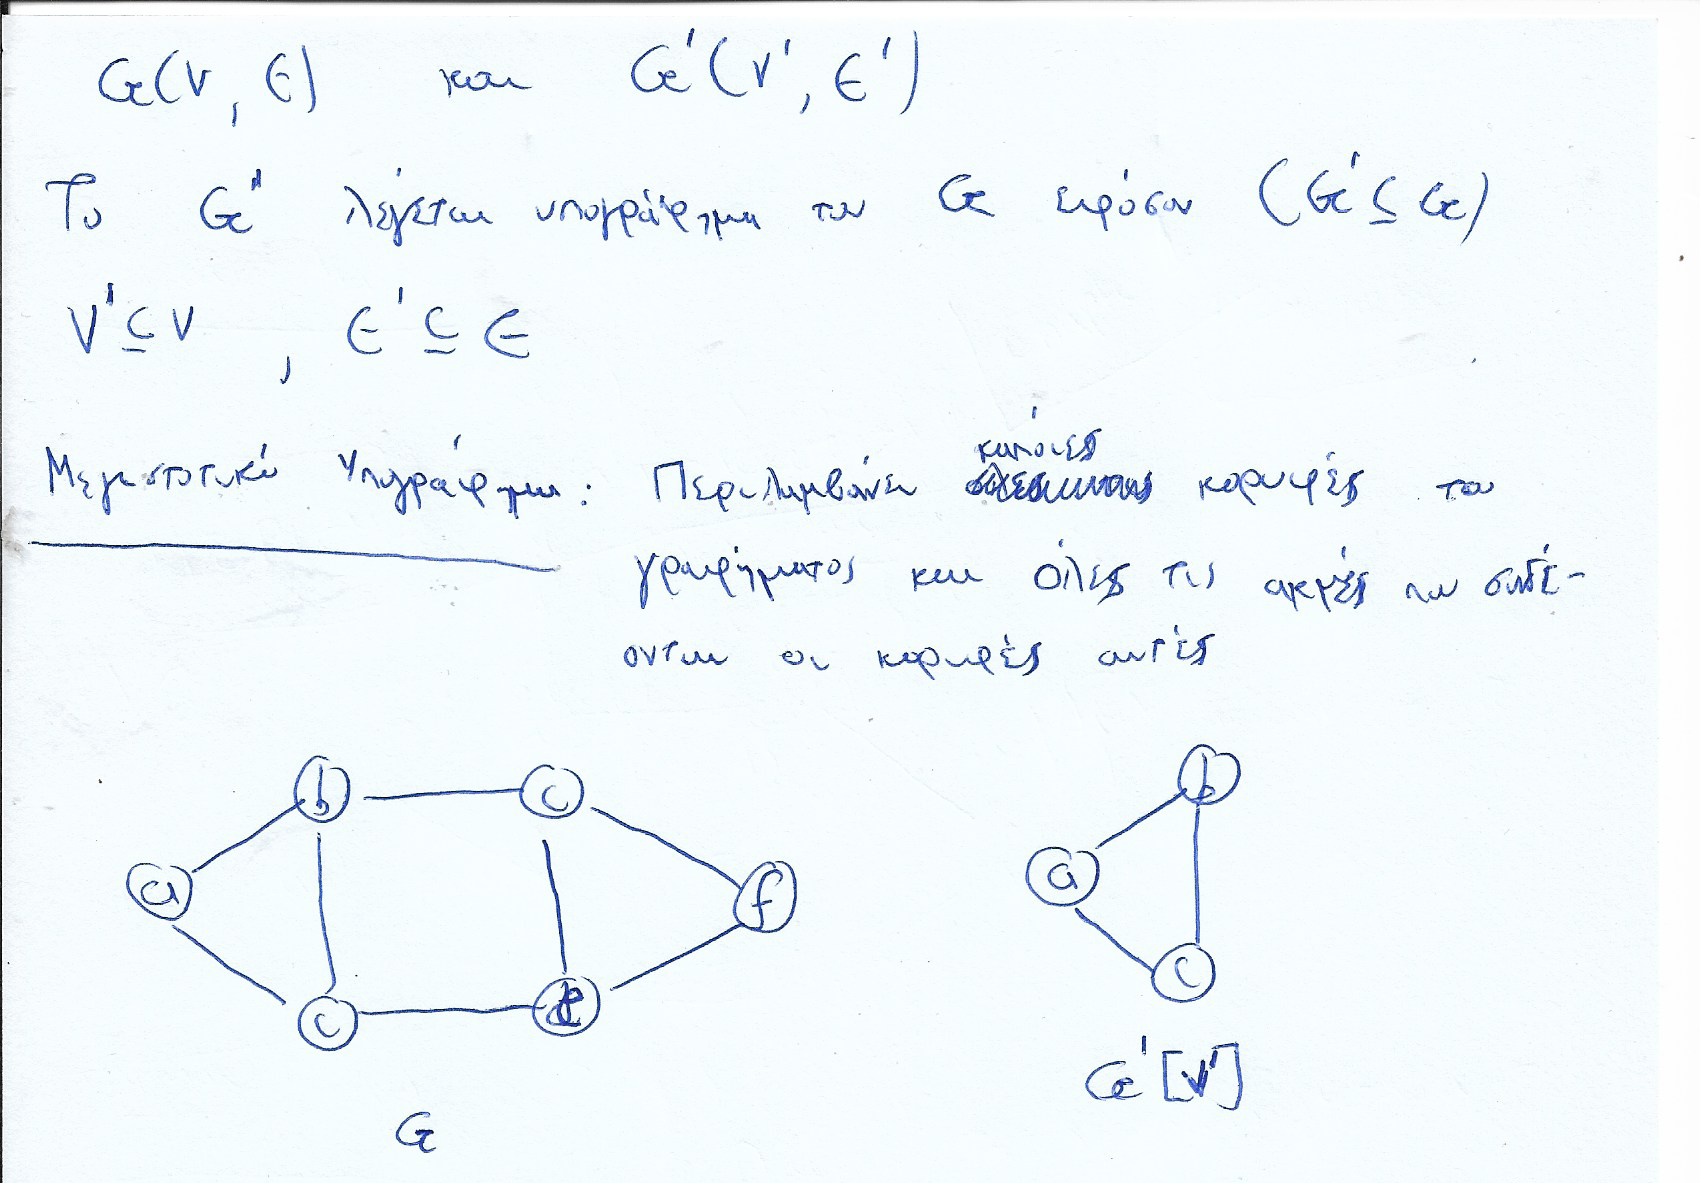 G(V, E) και G'(V', E')
Το G' λέγεται υπογράφημα του G εφόσον (G' ⊆ G)
V' ⊆ V , E' ⊆ E
Μεγιστοτικό Υπογράφημα: Περιλαμβάνει κάποιες κορυφές του
γραφήματος και όλες τις ακμές που συνδέ-
ονται οι κορυφές αυτές
b c b
a f a
c c
G'[V']
G